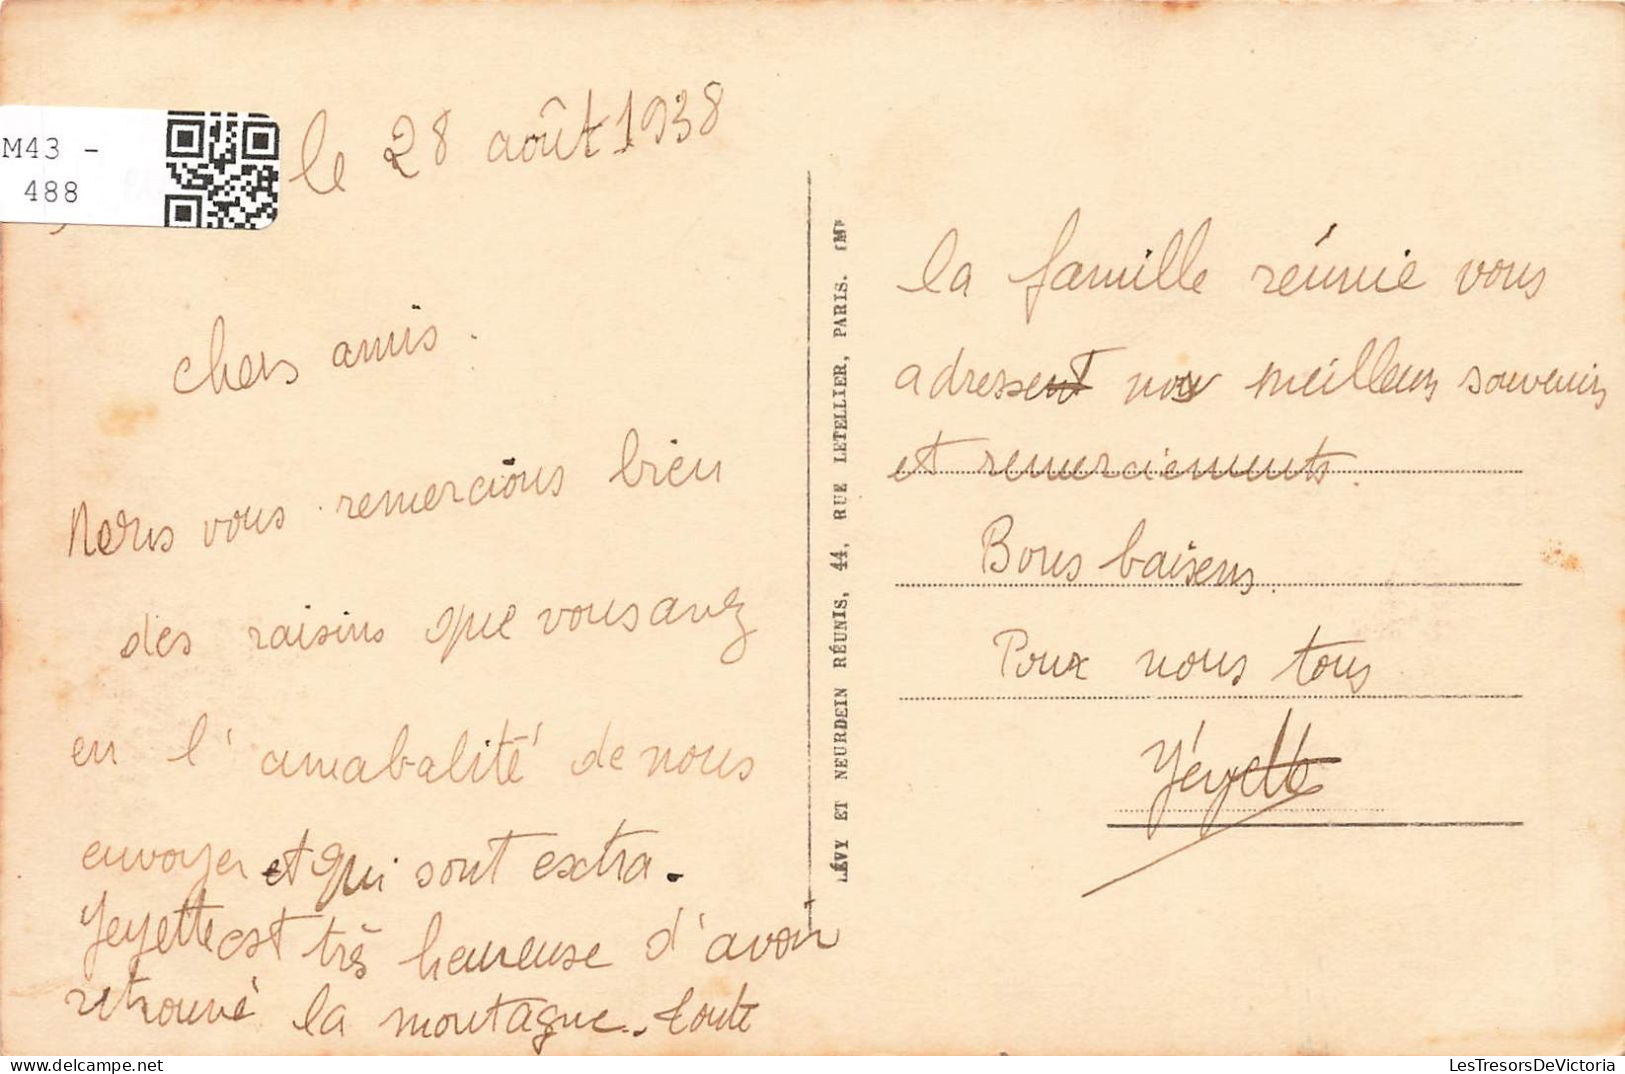 M43 -
488
le 28 août 1938
chers amis.
Nous vous remercions bien
des raisins que vous avez
en l'amabalité de nous
envoyer et qui sont extra.
Yeyette est très heureuse d'avoir
retrouvé la montagne.. toute
la famille réunie vous
adressent nos meilleurs souvenirs
et remerciements.
Bons baisers.
Pour nous tous
Yéyette
LÉVY ET NEURDEIN RÉUNIS, 44, RUE LETELLIER, PARIS. (Mp
LesTresorsDeVictoria